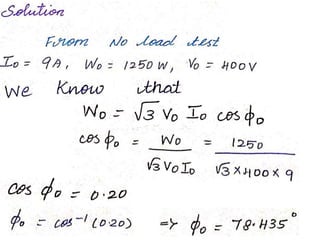 Solution
From No load test
I₀ = 9A, W₀ = 1250 W, V₀ = 400V
We Know that
W₀ = √3 V₀ I₀ cos ϕ₀
cos ϕ₀ = W₀ / √3 V₀ I₀ = 1250 / √3 × 400 × 9
cos ϕ₀ = 0.20
ϕ₀ = cos⁻¹ (0.20) => ϕ₀ = 78.435°